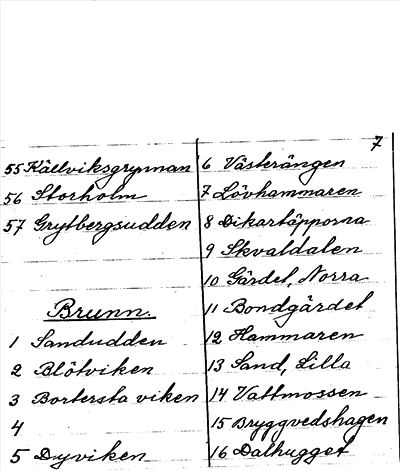 7
55 Källviksgrynnan
56 Storholm
57 Grytbergsudden
Brunn.
1 Sandudden
2 Blötviken
3 Bortersta viken
4
5 Dyviken
6 Västerängen
7 Lövhammaren
8 Dikartäpporna
9 Skvaldalen
10 Gärdet, Norra
11 Bondgärdet
12 Hammaren
13 Sand, Lilla
14 Vattmossen
15 Bryggvedshagen
16 Dalhugget